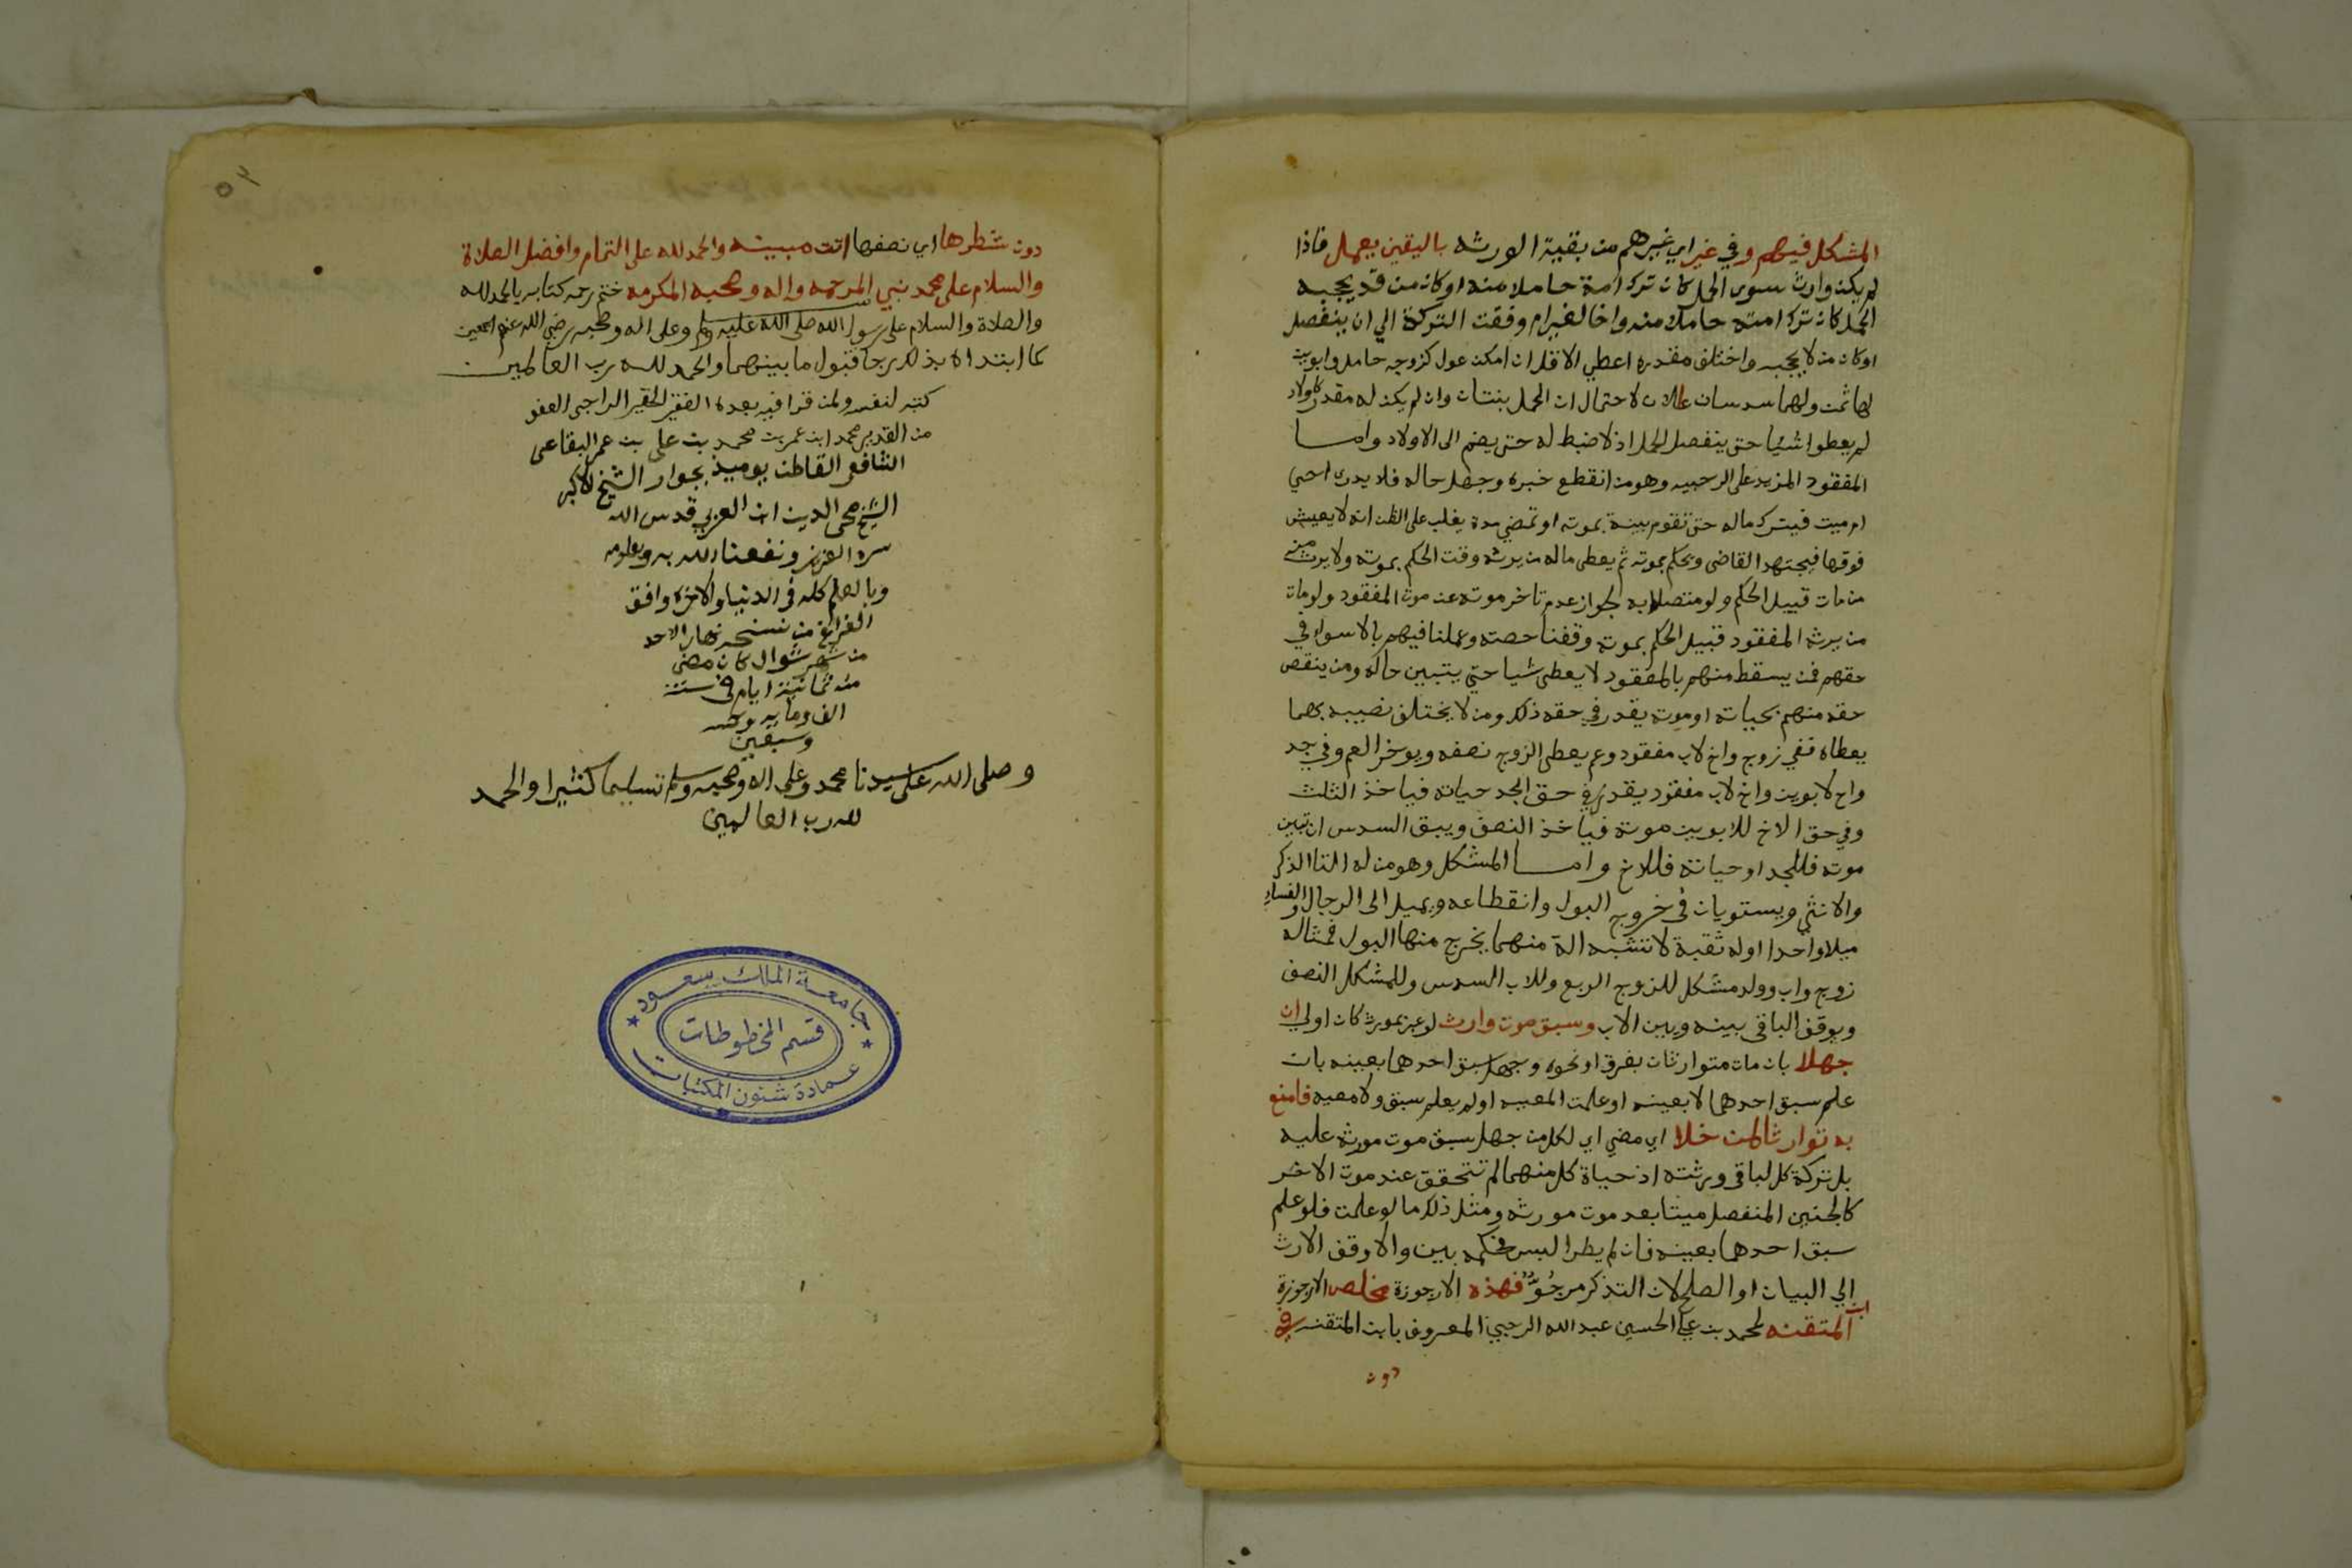 المشكل فيهم وفي غير اي غيرهم من بقية الورثه باليقين يعمل فاذا
لم يكن وارث سوى الحمل كان ترك امة حاملا منه او كان من قد يحجبه
الحمل كان ترك امته حاملا منه واخا لغير ام وقفت التركة الي ان ينفصل
او كان من لا يحجبه واختلف مقدره اعطي الاقل ان امكن عول كزوجه حامل وابوين
لها ثمن ولهما سدسان عالان لاحتمال ان الحمل بنتان وان لم يكن له مقدر كاولاد
لم يعطوا شيا حتى ينفصل الحمل اذ لا ضبط له حتى يضم الى الاولاد واما
المفقود المزيد على الرحبيه وهو من انقطع خبره وجهل حاله فلا يدرى احي
ام ميت فيترك ماله حتى تقوم بينة بموته او تمضي مدة يغلب على الظن انه لا يعيش
فوقها فيجتهد القاضي ويحكم بموته ثم يعطى ماله من يرثه وقت الحكم بموته ولا يرث منه
من مات قبيل الحكم ولو متصلا به لجواز عدم تاخر موته عن موت المفقود ولو مات
من يرثه المفقود قبيل الحكم بموته وقفنا حصته وعملنا فيهم بالاسوا في
حقهم فمن يسقط منهم بالمفقود لا يعطى شيا حتى يتبين حاله ومن ينقص
حقه منهم بحياته او موته يقدر في حقه ذلك ومن لا يختلف نصيبه بهما
يعطاه ففي زوج واخ لاب مفقود وعم يعطى الزوج نصفه ويوخر العم وفي جد
واخ لابوين واخ لاب مفقود يقدر في حق الجد حياته فياخذ الثلث
وفي حق الاخ للابوين موته فياخذ النصف ويبقى السدس ان تبين
موته فللجد او حياته فللاخ واما المشكل وهو من له التا الذكر
والانثى ويستويان في خروج البول وانقطاعه ويميل الى الرجال والنساء
ميلا واحدا او له ثقبة لا تشبه الة منهما يخرج منها البول فمثاله
زوج واب وولد مشكل للزوج الربع وللاب السدس وللمشكل النصف
ويوقف الباقي بينه وبين الاب وسبق موت وارث لو عبر بمورث كان اولي ان
جهلا بان مات متوارثان بغرق او نحوه وجهل سبق احدهما بعينه بان
علم سبق احدهما لا بعينه او علمت المعيه او لم يعلم سبق ولا معيه فامنع
به توارثا لمن خلا اي مضي اي لكل من جهل سبق موت مورثه عليه
بل تركة كل لباقي ورثته اذ حياة كل منهما لم تتحقق عند موت الاخر
كالجنين المنفصل ميتا بعد موت مورثه ومثل ذلك ما لو علمت فلو علم
سبق احدهما بعينه فان لم يطرا لبس فحكمه بين والا وقف الارث
الي البيان او الصلح لان التذكر مرجو فهذه الارجوزة مخلص الارجوزة
ابن المتقنه لمحمد بن علي الحسين عبد الله الرحبي المعروف بابن المتقنه في
دون
٥٢
دون شطرها اي نصفها اتت مبينه والحمد لله على التمام وافضل الصلاة
والسلام على محمد نبي المرحمه واله وصحبه المكرمه ختم رحمه كتابه بالحمد لله
والصلاة والسلام على رسول الله صلى الله عليه وسلم وعلى اله وصحبه رضي الله عنهم اجمعين
كما ابتداه بذلك رجا قبول ما بينهما والحمد لله رب العالمين
كتبه لنفسه ولمن قرا فيه بعده الفقير الحقير الراجي العفو
من القدير محمد ابن عمر بن محمد بن علي بن عمر البقاعي
الشافعي القاطن يوميذ بجوار الشيخ الاكبر
الشيخ محي الدين ابن العربي قدس الله
سره العزيز ونفعنا الله به وبعلومه
وبالعلم كله في الدنيا والاخره وافق
الفراغ من نسخه نهار الاحد
من شهر شوال كان مضى
منه ثمانية ايام في سنة
الف وماية
وسبعين
وصلى الله على سيدنا محمد وعلى اله وصحبه وسلم تسليما كثيرا والحمد
لله رب العالمين
جامعة الملك سعود
قسم المخطوطات
عمادة شئون المكتبات